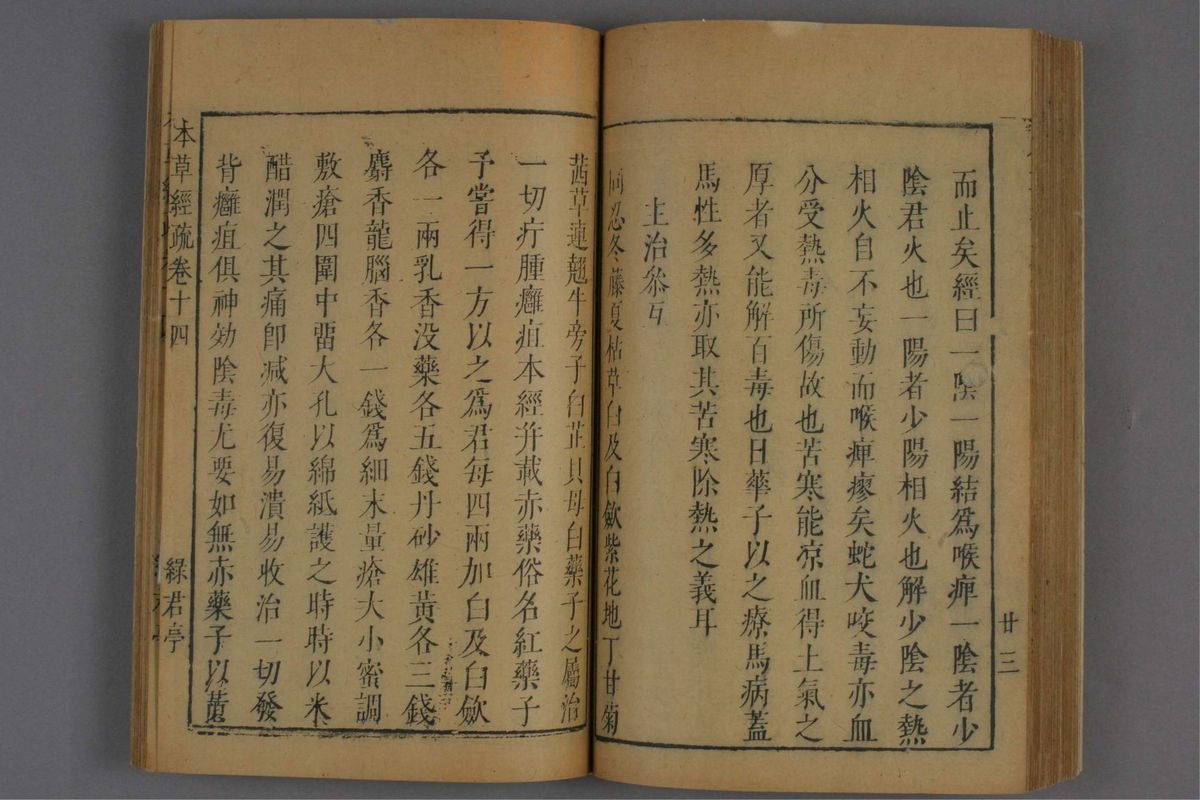 廿三
而止矣經曰一陰一陽結爲喉痺一陰者少
陰君火也一陽者少陽相火也解少陰之熱
相火自不妄動而喉痺瘳矣蛇犬咬毒亦血
分受熱毒所傷故也苦寒能凉血得土氣之
厚者又能解百毒也日華子以之療馬病蓋
馬性多熱亦取其苦寒除熱之義耳
主治叅互
同忍冬藤夏枯草白及白歛紫花地丁甘菊
茜草連翹牛旁子白芷貝母白藥子之屬治
一切疔腫癰疽本經幷載赤藥俗名紅藥子
予嘗得一方以之爲君每四兩加白及白歛
各一兩乳香没藥各五錢丹砂雄黃各三錢
麝香龍腦香各一錢爲細末量瘡大小蜜調
敷瘡四圍中畱大孔以綿紙護之時時以米
醋潤之其痛卽减亦復易潰易收治一切發
背癰疽俱神効陰毒尤要如無赤藥子以黃
本草經疏卷十四
綠君亭